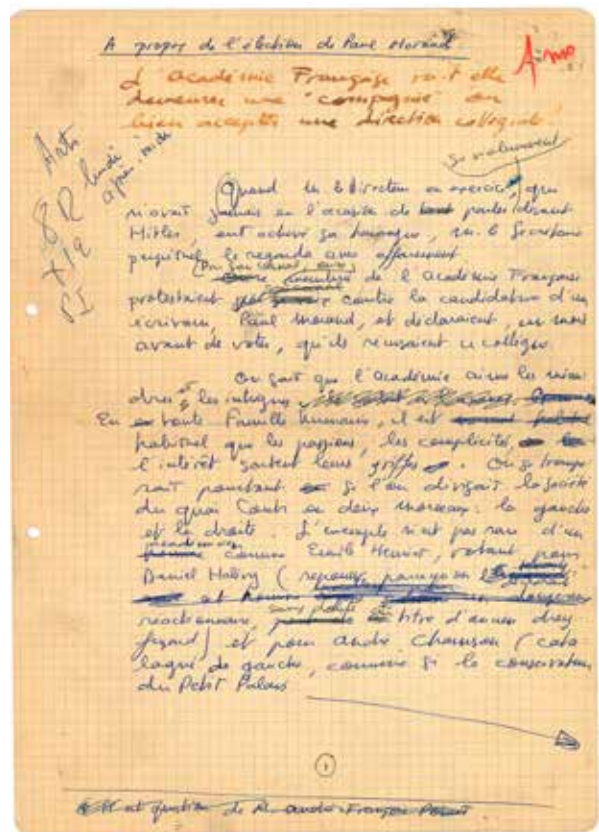 A propos de l'élection de Paul Morand
L'Académie Française va-t-elle
demeurer une "compagnie" ou
bien accepter une direction collégiale?
Arts
lundi
après-midi
Quand le Directeur en exercice, qui
n'avait jamais eu l'occasion de parler devant
Hitler, eut achevé sa harangue, le Secrétaire
perpétuel le regarda avec effarement
de l'Académie Française
protestaient contre la candidature d'un
écrivain, Paul Morand, et déclaraient, un mois
avant de voter, qu'ils récusaient ce collègue.
On sait que l'Académie aime les
et les intrigues
En toute famille humaine, il est
habituel que les passions, les complicités,
l'intérêt sortent leurs griffes. On se trompe
rait pourtant si l'on divisait la société
du quai Conti en deux morceaux : la gauche
et la droite. L'exemple n'est pas rare d'un
comme Emile Henriot, votant pour
Daniel Halévy (
réactionnaire, titre d'ancien drey
fusard) et pour André Chamson (cata
logué de gauche, comme si le conservateur
du Petit Palais
1